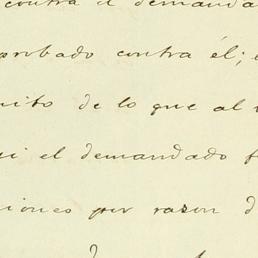 contra el demanda
probado contra él;
uito de lo que al
si el demandado f
iones por razon d